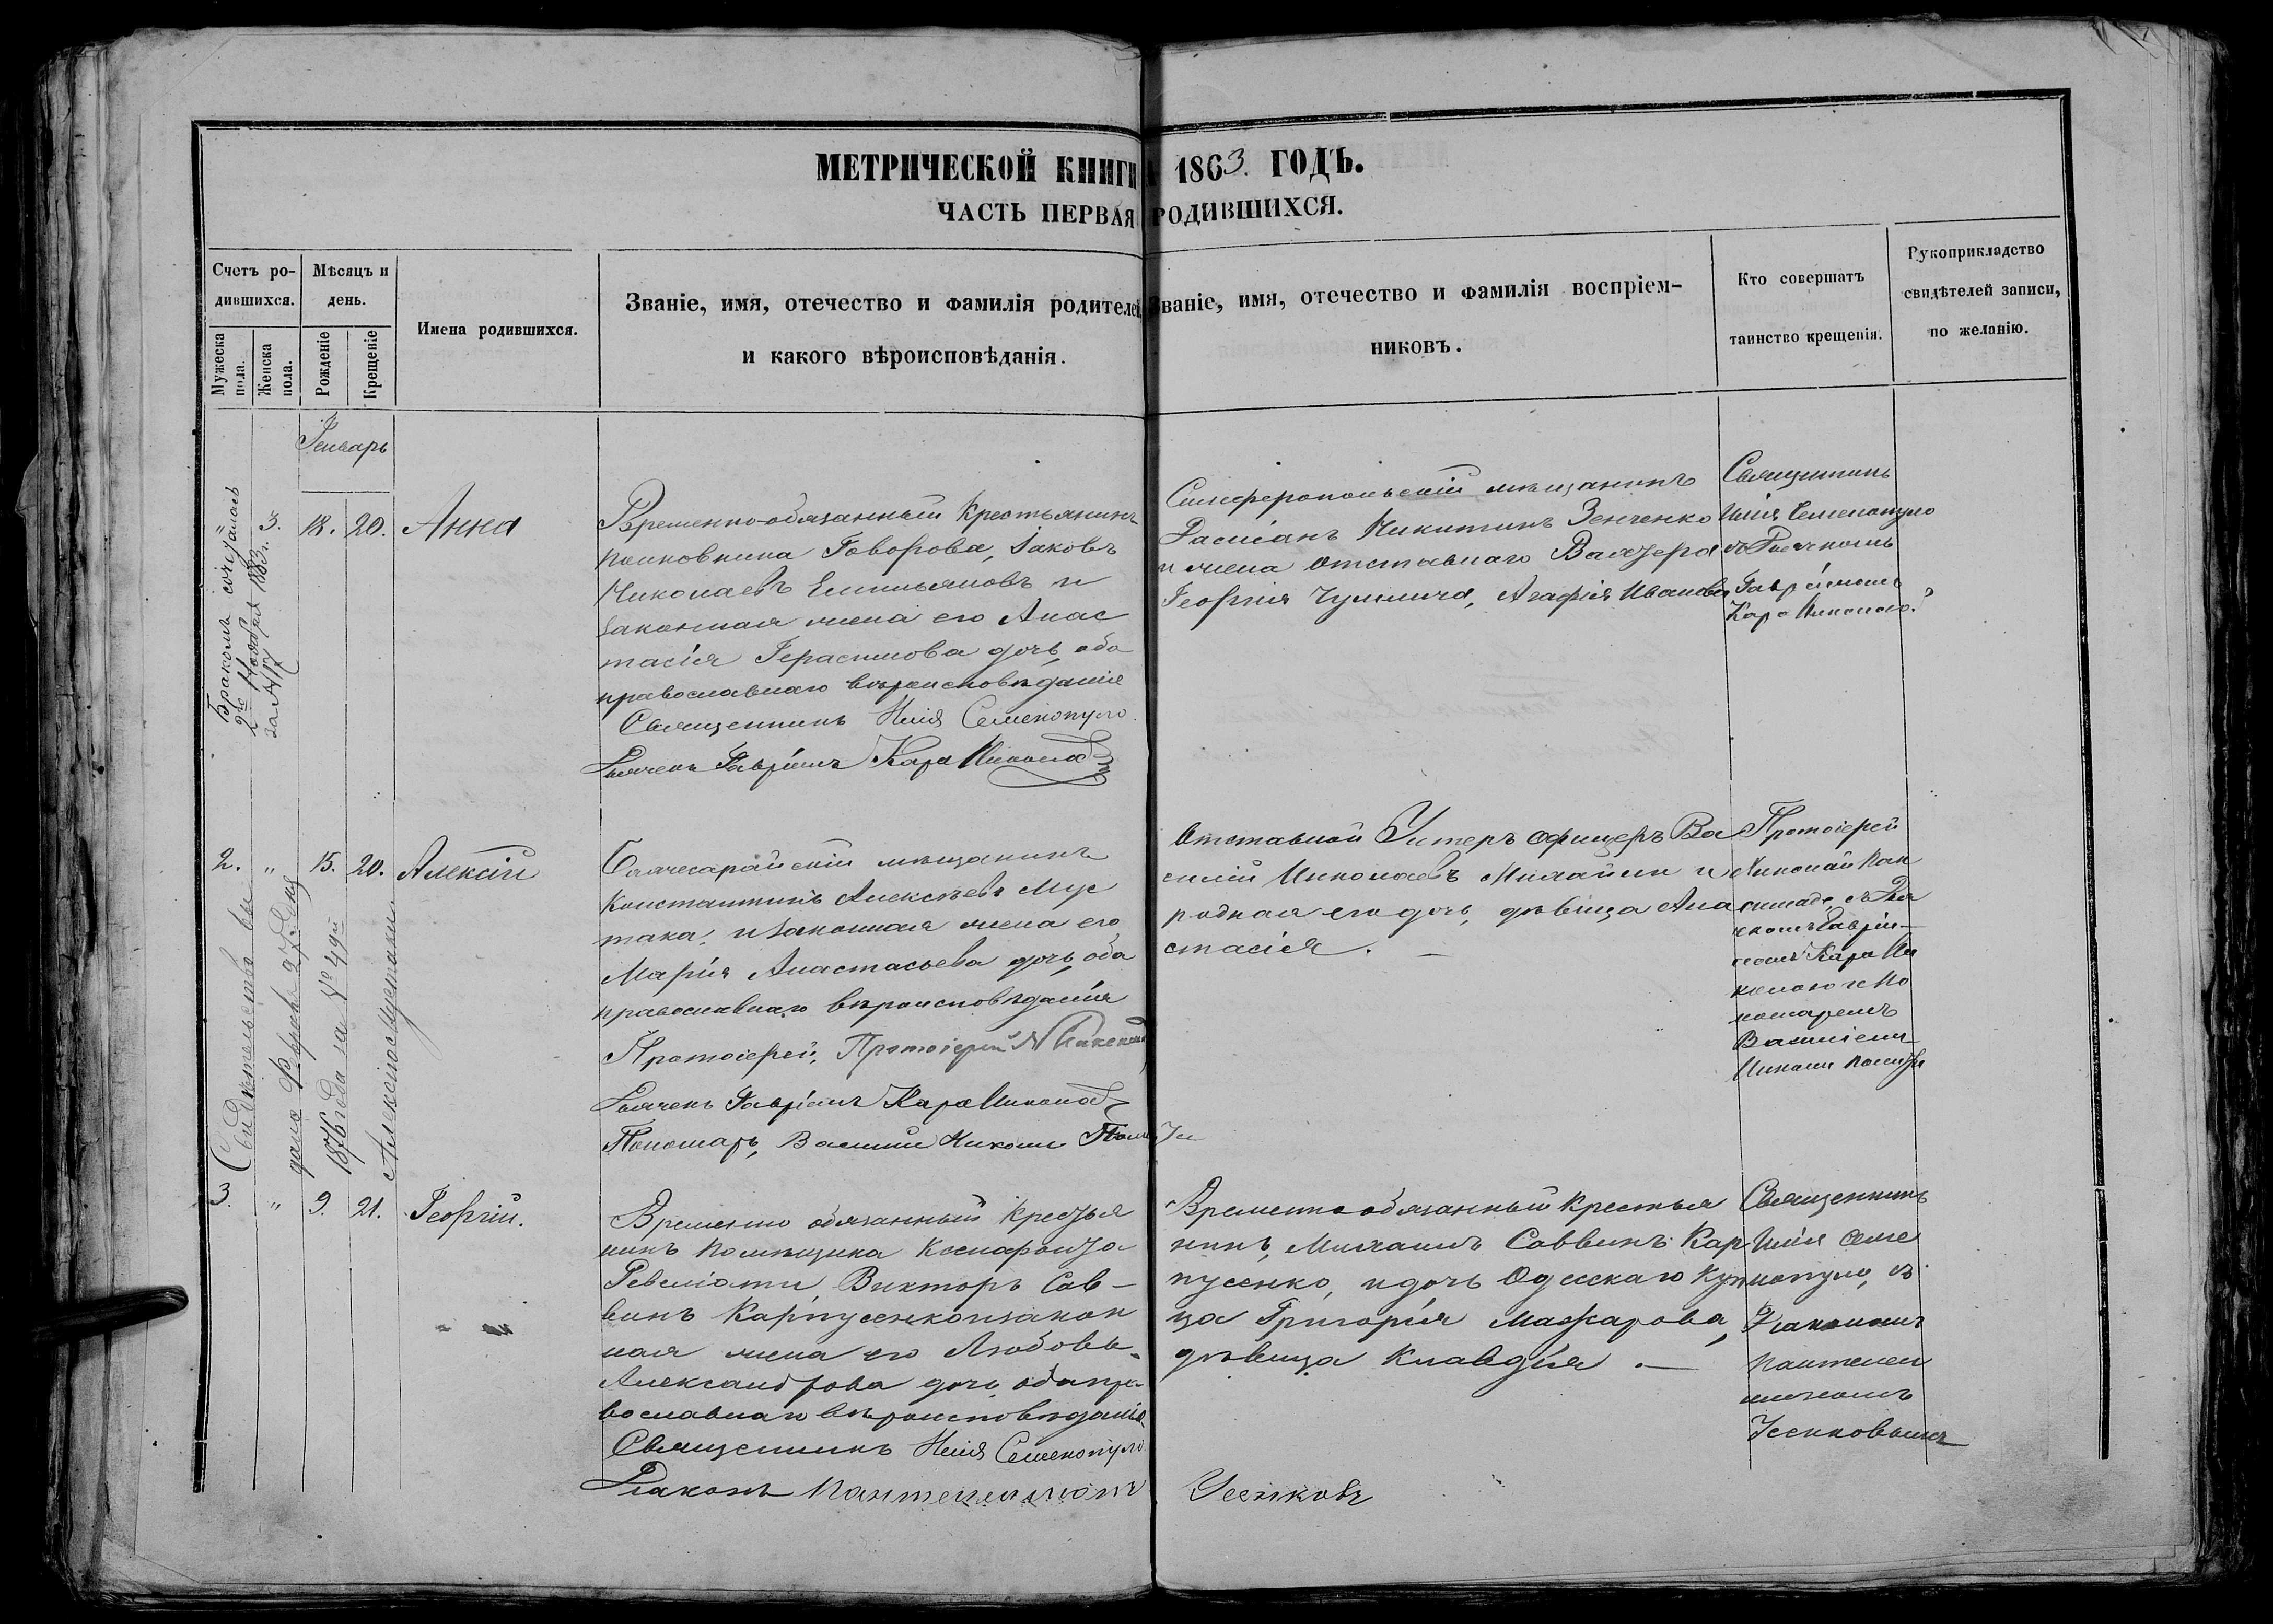 МЕТРИЧЕСКОЙ КНИГИ 1863. ГОДЪ.
ЧАСТЬ ПЕРВАЯ РОДИВШИХСЯ.
Счетъ ро-
дившихся.
Мужеска
пола.
Женска
пола.
Мѣсяцъ и
день.
Рожденіе
Крещеніе
Имена родившихся.
Званіе, имя, отечество и фамилія родителей
и какого вѣроисповѣданія.
Званіе, имя, отечество и фамилія воспріем-
никовъ.
Кто совершатъ
таинство крещенія.
Рукоприкладство
свидѣтелей записи,
по желанію.
Генварь
Бракомъ сочеталась
2го Ноября 1883 г.
за №
" 3. 18. 20. Анна
Временно-обязанный Крестьянинъ
полковника Говорова, Іаковъ
Николаевъ Емильяновъ и
законная жена его Анас
тасія Герасимова дочь, оба
православнаго вѣроисповѣданія
Священникъ Илія Семенопуло.
Дьячекъ Гавріилъ Кара Никола
Симферопольскій мѣщанинъ
Касіанъ Никитинъ Зенченко
и жена отставнаго
Георгія Чумича, Агафія Иванова
Священникъ
Илія Семенопуло
съ Дьячкомъ
Гавріиломъ
Кара Николою.
2. " 15. 20. Алексій
Свидѣтельство вы
дано Февр. 27 дня
1876 года за № 49й
Алексію Мустаки
Бахчесарайскій мѣщанинъ
Константинъ Алексѣевъ Мус
така, и законная жена его,
Марія Анастасьева дочь, оба
православнаго вѣроисповѣданія
Протоіерей, Протоіерей Н
Дьячекъ Гавріилъ Кара Никола
Пономарь, Василій Николи
Отставной Унтеръ офицеръ Ва
силій Николаевъ Михайли и
родная его дочь, дѣвица Ана
стасія. —
Протоіерей
Николай
съ Дья
чкомъ Гаврии—
ломъ Кара Ни
колою и По
номаремъ
Василіемъ
Николи
3. " 9. 21. Георгій.
Временно обязанный Крестья
нинъ помѣщика Ксенофонта
Ревеліоти, Викторъ Сав—
винъ Карпусенко и закон
ная жена его Любовь
Александрова дочь, оба пра
вославнаго вѣроисповѣданія
Священникъ Илія Семенопуло
Діаконъ Пантелеимонъ Усенковъ
Временно обязанный крестья
нинъ, Михаилъ Саввинъ Кар
пусенко, и дочь Одесскаго Куп
ца Григорія Макарова,
дѣвица Клавдія. —
Священникъ
Илія Семе
нопуло, съ
Діакономъ
Пантелеи
мономъ
Усенковымъ